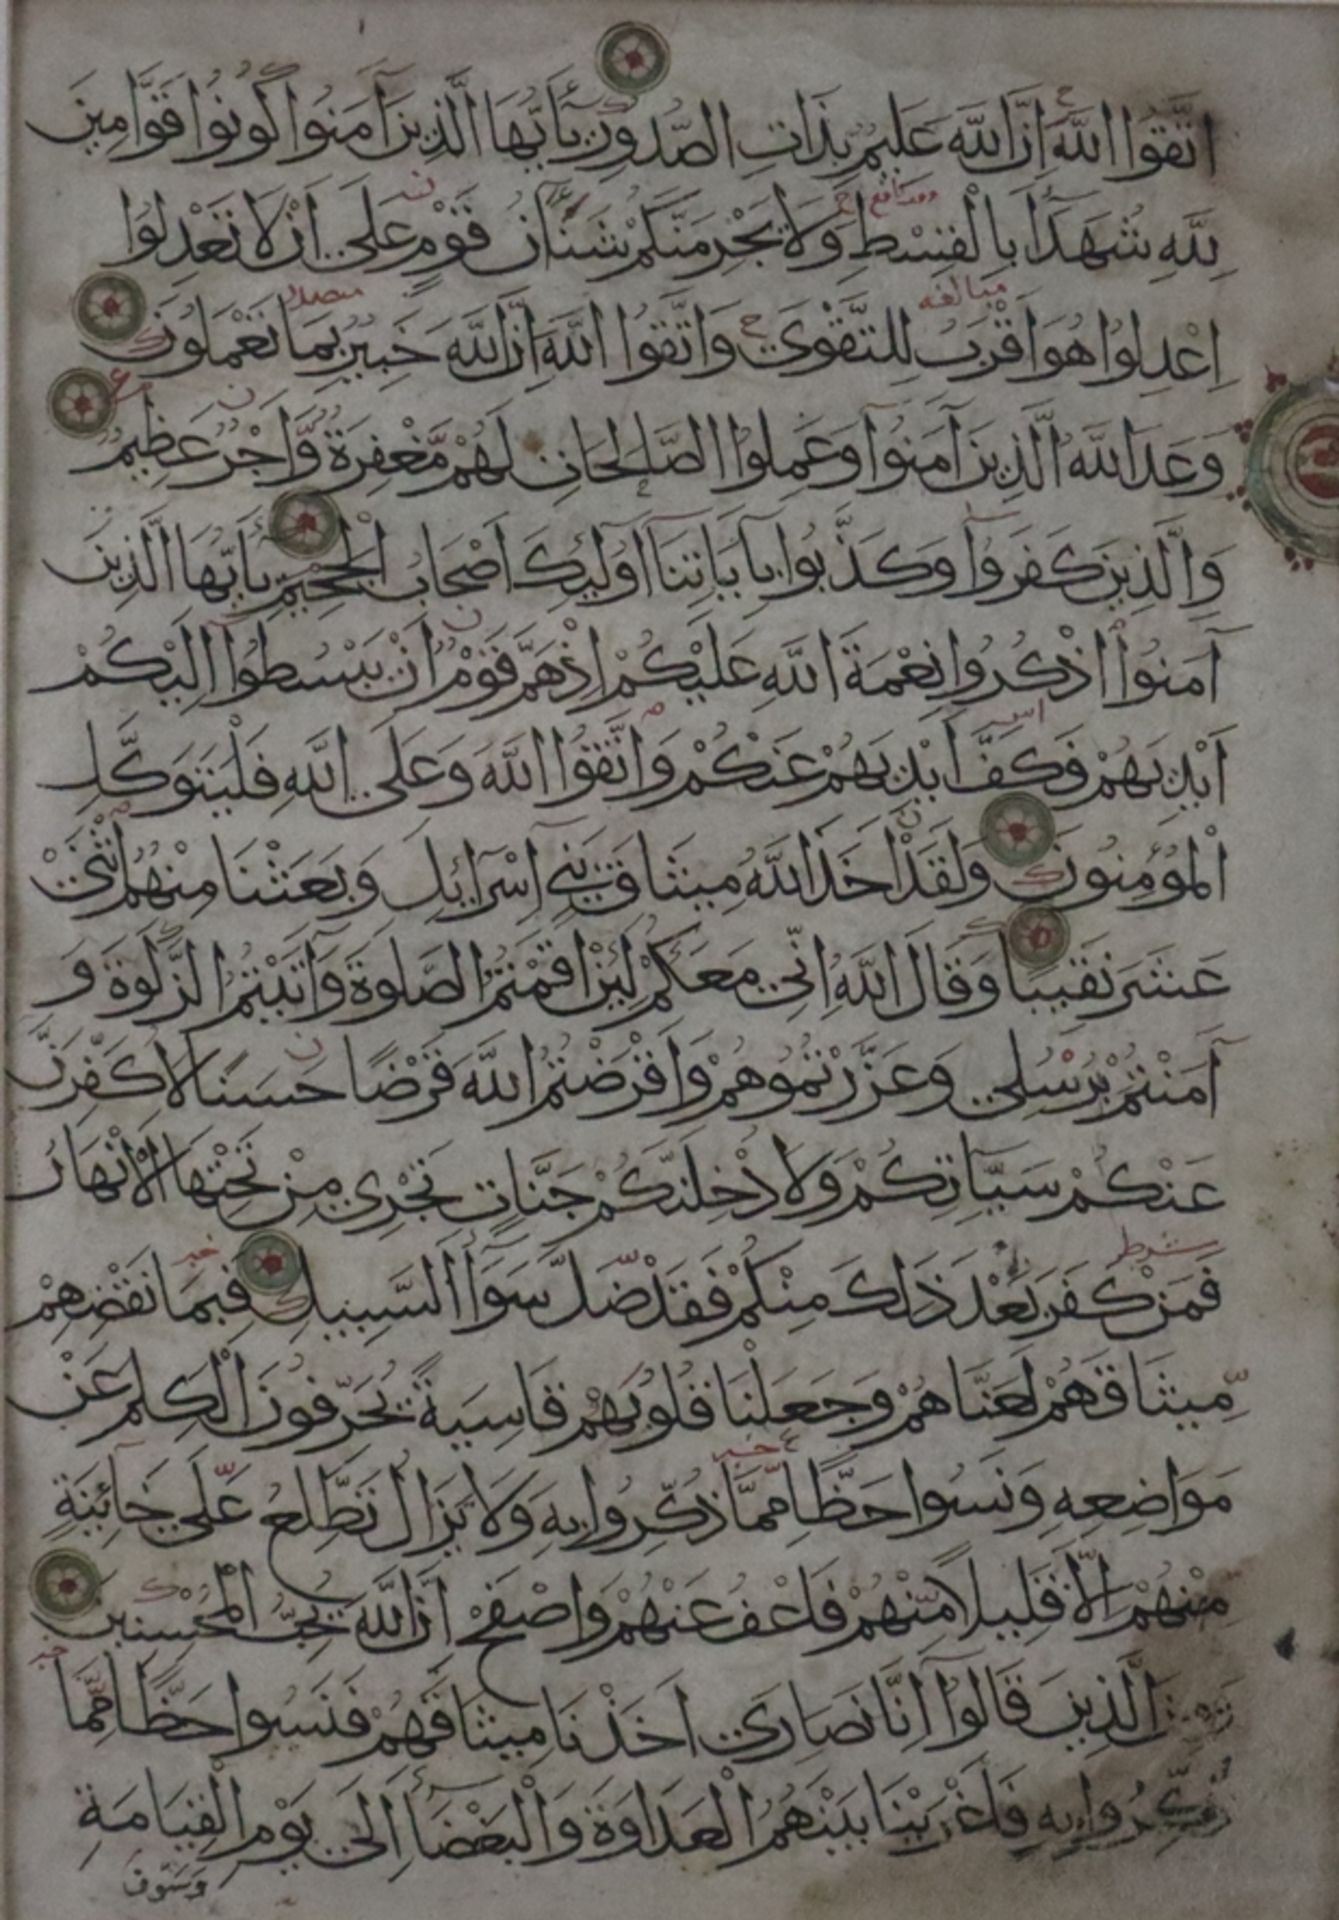 اتَّقُوا اللَّهَ إِنَّ اللَّهَ عَلِيمٌ بِذَاتِ الصُّدُورِ يَا أَيُّهَا الَّذِينَ آمَنُوا كُونُوا قَوَّامِينَ
لِلَّهِ شُهَدَآءَ بِالْقِسْطِ وَلَا يَجْرِمَنَّكُمْ شَنَآنُ قَوْمٍ عَلَى أَنْ لَا تَعْدِلُوا
اعْدِلُوا هُوَ أَقْرَبُ لِلتَّقْوَى وَاتَّقُوا اللَّهَ إِنَّ اللَّهَ خَبِيرٌ بِمَا تَعْمَلُونَ
وَعَدَ اللَّهُ الَّذِينَ آمَنُوا وَعَمِلُوا الصَّالِحَاتِ لَهُمْ مَّغْفِرَةٌ وَّأَجْرٌ عَظِيمٌ
وَالَّذِينَ كَفَرُوا وَكَذَّبُوا بِآيَاتِنَا أُولَئِكَ أَصْحَابُ الْجَحِيمِ يَا أَيُّهَا الَّذِينَ
آمَنُوا اذْكُرُوا نِعْمَةَ اللَّهِ عَلَيْكُمْ إِذْ هَمَّ قَوْمٌ أَنْ يَبْسُطُوا إِلَيْكُمْ
أَيْدِيَهُمْ فَكَفَّ أَيْدِيَهُمْ عَنْكُمْ وَاتَّقُوا اللَّهَ وَعَلَى اللَّهِ فَلْيَتَوَكَّلِ
الْمُؤْمِنُونَ وَلَقَدْ أَخَذَ اللَّهُ مِيثَاقَ بَنِي إِسْرَآئِيلَ وَبَعَثْنَا مِنْهُمُ اثْنَيْ
عَشَرَ نَقِيبًا وَقَالَ اللَّهُ إِنِّي مَعَكُمْ لَئِنْ أَقَمْتُمُ الصَّلَوةَ وَآتَيْتُمُ الزَّكَوةَ وَ
آمَنْتُمْ بِرُسُلِي وَعَزَّرْتُمُوهُمْ وَأَقْرَضْتُمُ اللَّهَ قَرْضًا حَسَنًا لَأُكَفِّرَنَّ
عَنْكُمْ سَيِّآتِكُمْ وَلَأُدْخِلَنَّكُمْ جَنَّاتٍ تَجْرِي مِنْ تَحْتِهَا الْأَنْهَارُ
فَمَنْ كَفَرَ بَعْدَ ذَلِكَ مِنْكُمْ فَقَدْ ضَّلَّ سَوَآءَ السَّبِيلِ فَبِمَا نَقْضِهِمْ
مِّيثَاقَهُمْ لَعَنَّاهُمْ وَجَعَلْنَا قُلُوبَهُمْ قَاسِيَةً يُحَرِّفُونَ الْكَلِمَ عَنْ
مَوَاضِعِهِ وَنَسُوا حَظًّا مِّمَّا ذُكِّرُوا بِهِ وَلَا تَزَالُ تَطَّلِعُ عَلَى خَآئِنَةٍ
مِنْهُمْ إِلَّا قَلِيلًا مِّنْهُمْ فَاعْفُ عَنْهُمْ وَاصْفَحْ إِنَّ اللَّهَ يُحِبُّ الْمُحْسِنِينَ
الَّذِينَ قَالُوا إِنَّا نَصَارَى أَخَذْنَا مِيثَاقَهُمْ فَنَسُوا حَظًّا مِّمَّا
ذُكِّرُوا بِهِ فَأَغْرَيْنَا بَيْنَهُمُ الْعَدَاوَةَ وَالْبَغْضَآءَ إِلَى يَوْمِ الْقِيَامَةِ
وَسَوْفَ